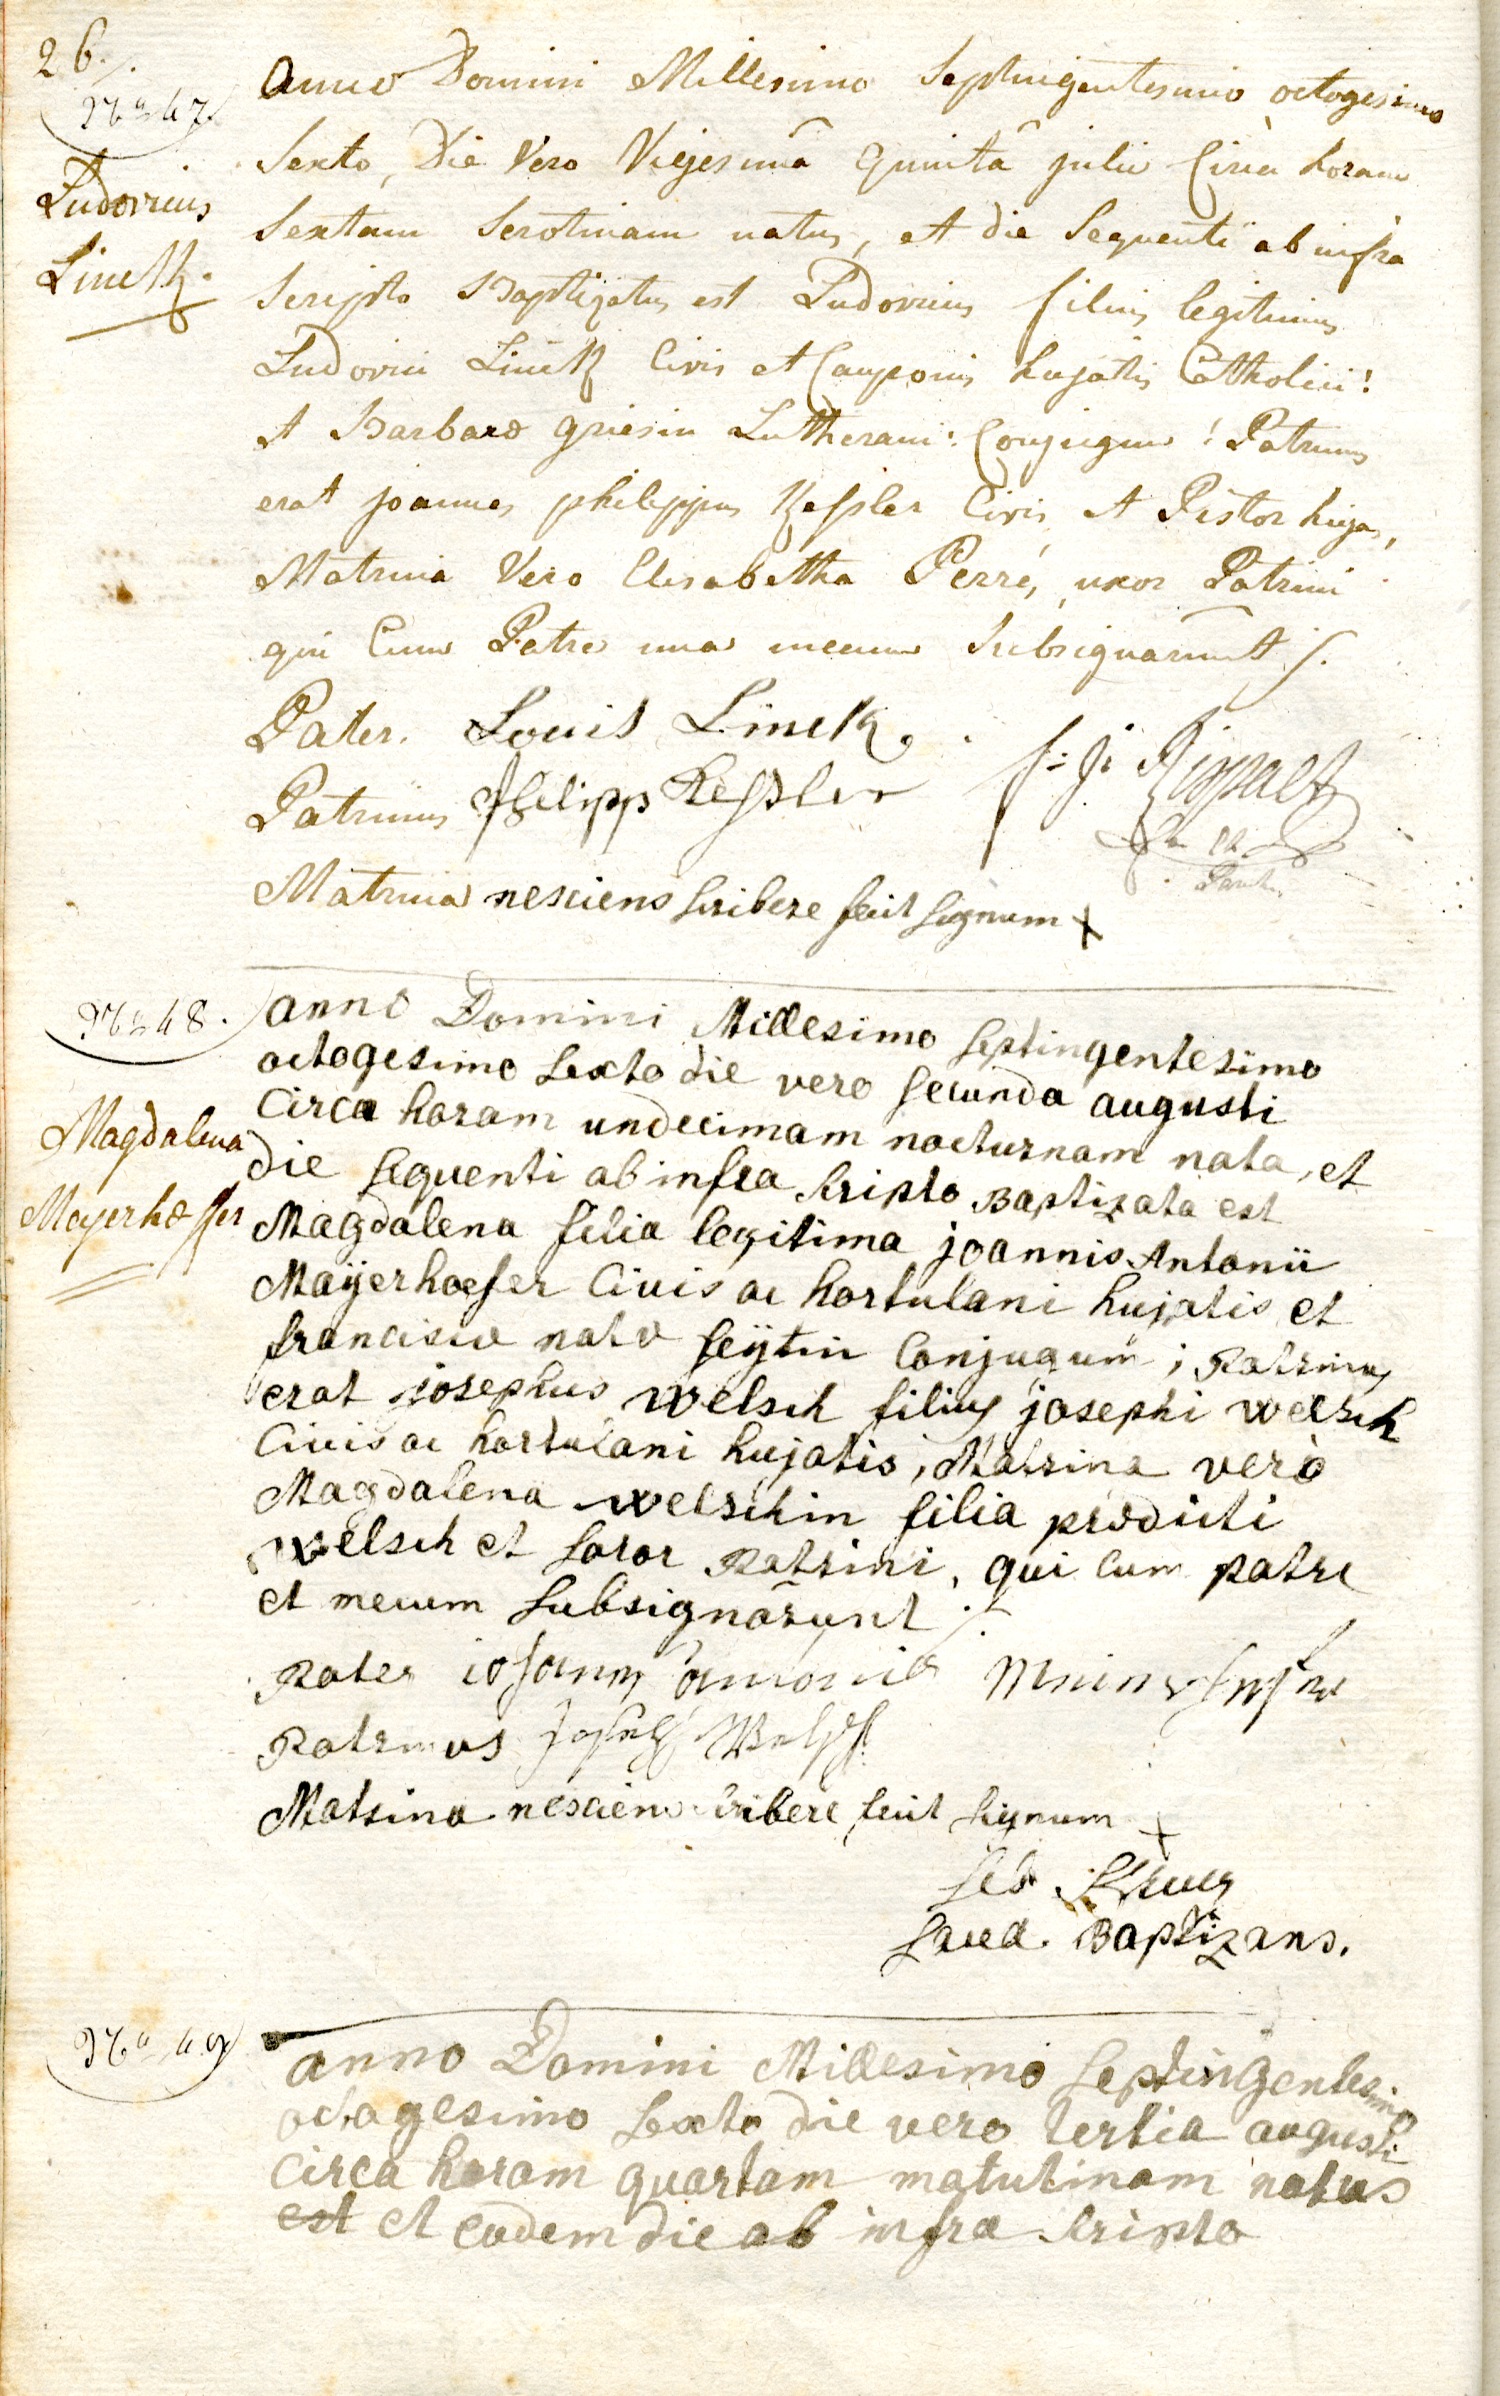 26.
No 47
Ludovicus
Linck.
Anno Domini Millesimo Septingentesimo octogesimo
Sexto, Die Vero Viejesimâ Quintâ julii Circa horam
Sextam Serotinam natus, et die Sequenti ab infra
Scripto Baptizatus est Ludovicus filius legitimus
Ludovici Linck Civis et Cauponis hujatis Catholici!
et Barbara Griesin Lutherani: Conjugum! Patrinus
erat joannes philippus Kessler Civis et Pistor hujas,
Matrina Vero Elisabetha Perré, uxor Patrini
qui Cum Patre una mecum Subsignarunt ∫.
Pater. Louis Linck.
Patrinus Philipp Kessler
f: j:
Matrina nesciens scribere fecit signum +
No 48.
Magdalena
Mayerhoeffer
anno Domini Millesimo septingentesimo
octogesimo sexto die vero secunda augusti
Circa horam undecimam nocturnam nata, et
die sequenti ab infra scripto Baptizata est
Magdalena filia legitima joannis Antonii
Maÿerhoefer Civis ac hortulani hujatis et
francisca nata seÿtin Conjugum; Patrinus
erat josephus welsch filius josephi welsch
Civis ac hortulani hujatis, Matrina verò
Magdalena welschin filia prædicti
welsch et soror Patrini, qui cum patre
et mecum subsignârunt ./.
Pater iohann antoni
Patrinus Joseph Welsch
Matrina nesciens scribere fecit signum +
Sacell. Baptizans.
No 49
anno Domini Millesimo septingentesimo
octogesimo sexto die vero tertia augusti
circa horam quartam matutinam natus
est et eodem die ab infra scripto